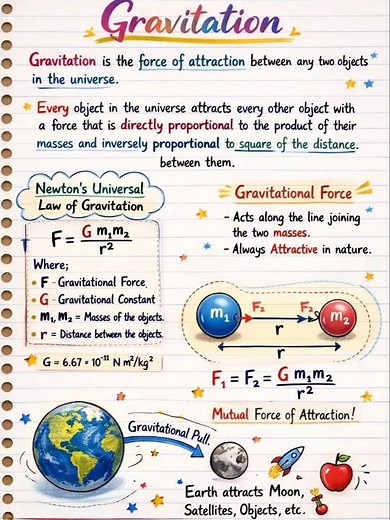 Gravitation
Gravitation is the force of attraction between any two objects
in the universe.
Every object in the universe attracts every other object with
a force that is directly proportional to the product of their
masses and inversely proportional to square of the distance.
between them.
Newton's Universal
Law of Gravitation
F = G m₁m₂ / r²
Where;
• F - Gravitational Force,
• G - Gravitational Constant
• m₁, m₂ = Masses of the objects.
• r = Distance between the objects.
G = 6.67 × 10⁻¹¹ N m²/kg²
Gravitational Force
- Acts along the line joining
the two masses.
- Always Attractive in nature.
m₁ F₂ F₂ m₂
r
r
F₁ = F₂ = G m₁m₂ / r²
Mutual Force of Attraction!
Gravitational Pull.
Earth attracts Moon,
Satellites, Objects, etc.